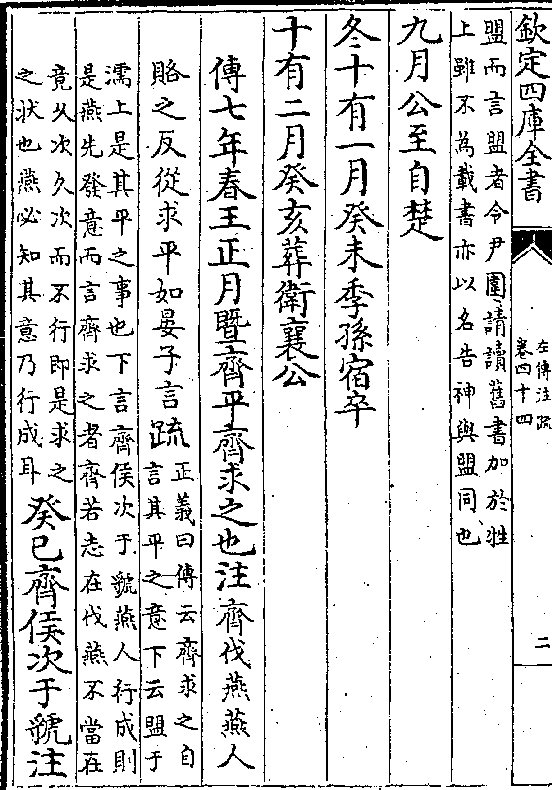 欽定四庫全書
左傳注疏
卷四十四
二
盟而言盟者令尹圍請讀舊書加於牲
上雖不為載書亦以名告神與盟同也
九月公至自楚
冬十有一月癸未季孫宿卒
十有二月癸亥葬衛襄公
傳七年春王正月暨齊平齊求之也注齊伐燕燕人
賂之反從求平如晏子言疏正義曰傳云齊求之自
言其平之意下云盟于
濡上是其平之事也下言齊侯次于虢燕人行成則
是燕先發意而言齊求之者齊若志在伐燕不當在
竟久次久次而不行即是求之
之狀也燕必知其意乃行成耳
癸巳齊侯次于虢注